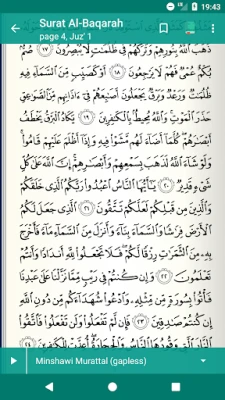 19:43
Surat Al-Baqarah
page 4, Juz' 1
ذَهَبَ ٱللَّهُ بِنُورِهِمْ وَتَرَكَهُمْ فِى ظُلُمَٰتٍ لَّا يُبْصِرُونَ ١٧
صُمٌّۢ بُكْمٌ عُمْىٌ فَهُمْ لَا يَرْجِعُونَ ١٨ أَوْ كَصَيِّبٍ مِّنَ ٱلسَّمَآءِ فِيهِ
ظُلُمَٰتٌ وَرَعْدٌ وَبَرْقٌ يَجْعَلُونَ أَصَٰبِعَهُمْ فِىٓ ءَاذَانِهِم مِّنَ ٱلصَّوَٰعِقِ
حَذَرَ ٱلْمَوْتِ وَٱللَّهُ مُحِيطٌۢ بِٱلْكَٰفِرِينَ ١٩ يَكَادُ ٱلْبَرْقُ يَخْطَفُ
أَبْصَٰرَهُمْ كُلَّمَآ أَضَآءَ لَهُم مَّشَوْا۟ فِيهِ وَإِذَآ أَظْلَمَ عَلَيْهِمْ قَامُوا۟
وَلَوْ شَآءَ ٱللَّهُ لَذَهَبَ بِسَمْعِهِمْ وَأَبْصَٰرِهِمْ إِنَّ ٱللَّهَ عَلَىٰ كُلِّ
شَىْءٍ قَدِيرٌ ٢٠ يَٰٓأَيُّهَا ٱلنَّاسُ ٱعْبُدُوا۟ رَبَّكُمُ ٱلَّذِى خَلَقَكُمْ
وَٱلَّذِينَ مِن قَبْلِكُمْ لَعَلَّكُمْ تَتَّقُونَ ٢١ ٱلَّذِى جَعَلَ لَكُمُ
ٱلْأَرْضَ فِرَٰشًا وَٱلسَّمَآءَ بِنَآءً وَأَنزَلَ مِنَ ٱلسَّمَآءِ مَآءً فَأَخْرَجَ
بِهِۦ مِنَ ٱلثَّمَرَٰتِ رِزْقًا لَّكُمْ فَلَا تَجْعَلُوا۟ لِلَّهِ أَندَادًا وَأَنتُمْ
تَعْلَمُونَ ٢٢ وَإِن كُنتُمْ فِى رَيْبٍ مِّمَّا نَزَّلْنَا عَلَىٰ عَبْدِنَا
فَأْتُوا۟ بِسُورَةٍ مِّن مِّثْلِهِۦ وَٱدْعُوا۟ شُهَدَآءَكُم مِّن دُونِ ٱللَّهِ
إِن كُنتُمْ صَٰدِقِينَ ٢٣ فَإِن لَّمْ تَفْعَلُوا۟ وَلَن تَفْعَلُوا۟ فَٱتَّقُوا۟
ٱلنَّارَ ٱلَّتِى وَقُودُهَا ٱلنَّاسُ وَٱلْحِجَارَةُ أُعِدَّتْ لِلْكَٰفِرِينَ ٢٤
Minshawi Murattal (gapless)